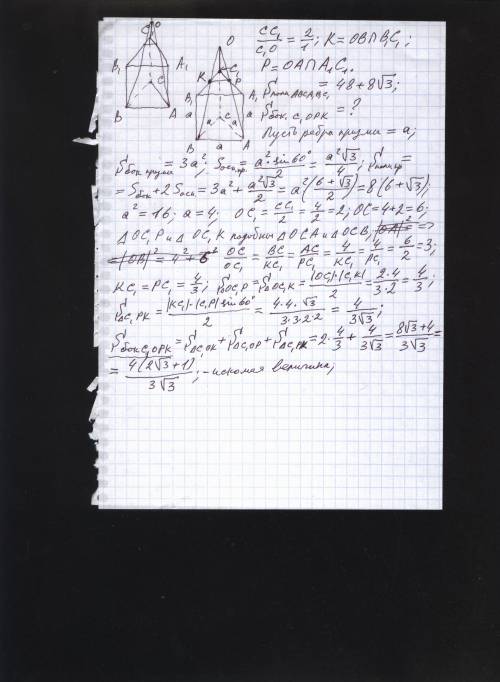 CC₁/C₁O = 2/1; K = OB∩B₁C₁;
P = OA∩A₁C₁.
Sполн ABCA₁B₁C₁ = 48+8√3;
Sбок. C₁OPK = ?
Пусть ребра призмы = a;
Sбок призмы = 3a²; Sосн.пр. = a²·sin60°/2 = a²√3/4; Sполн.пр =
= Sбок+2Sосн. = 3a²+a²√3/2 = a²(6+√3/2) = 8(6+√3);
a² = 16; a = 4; OC₁ = CC₁/2 = 4/2 = 2; OC = 4+2 = 6;
ΔOC₁P и ΔOC₁K подобны ΔOCA и ΔOCB, |OA|² = =>
|OB|² = 4²+6² OC/OC₁ = BC/KC₁ = AC/PC₁ = 4/KC₁ = 4/PC₁ = 6/2 = 3;
KC₁ = PC₁ = 4/3; SΔOC₁P = SΔOC₁K = |OC₁|·|C₁K|/2 = 2·4/3·2 = 4/3;
SΔC₁PK = |KC₁|·|C₁P| sin60°/2 = 4·4·√3/3·3·2·2 = 4/3√3;
Sбок C₁OPK = SΔC₁OK + SΔC₁OP + SΔC₁PK = 2·4/3 + 4/3√3 = 8√3+4/3√3 =
= 4(2√3+1)/3√3; - искомая величина;
O
C₁
B₁
A₁
C
B
A
O
C₁
K
P
B₁
A₁
a
a
C
a
a
B
a
A